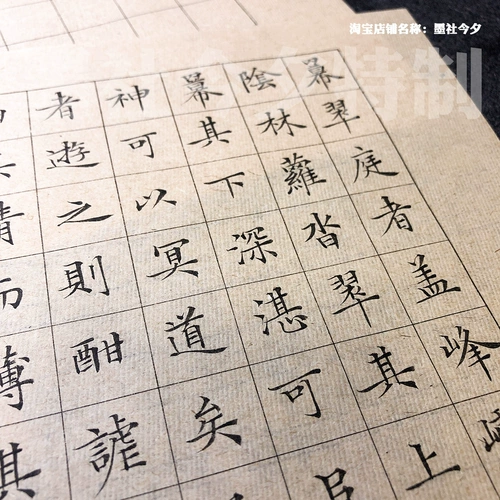 淘宝店铺名称：墨社今夕
特制
冪翠庭者盖峰
陰林蘿沓翠其上
冪其下深湛可
神可以冥道矣
者遊之則酣謔
清而薄其